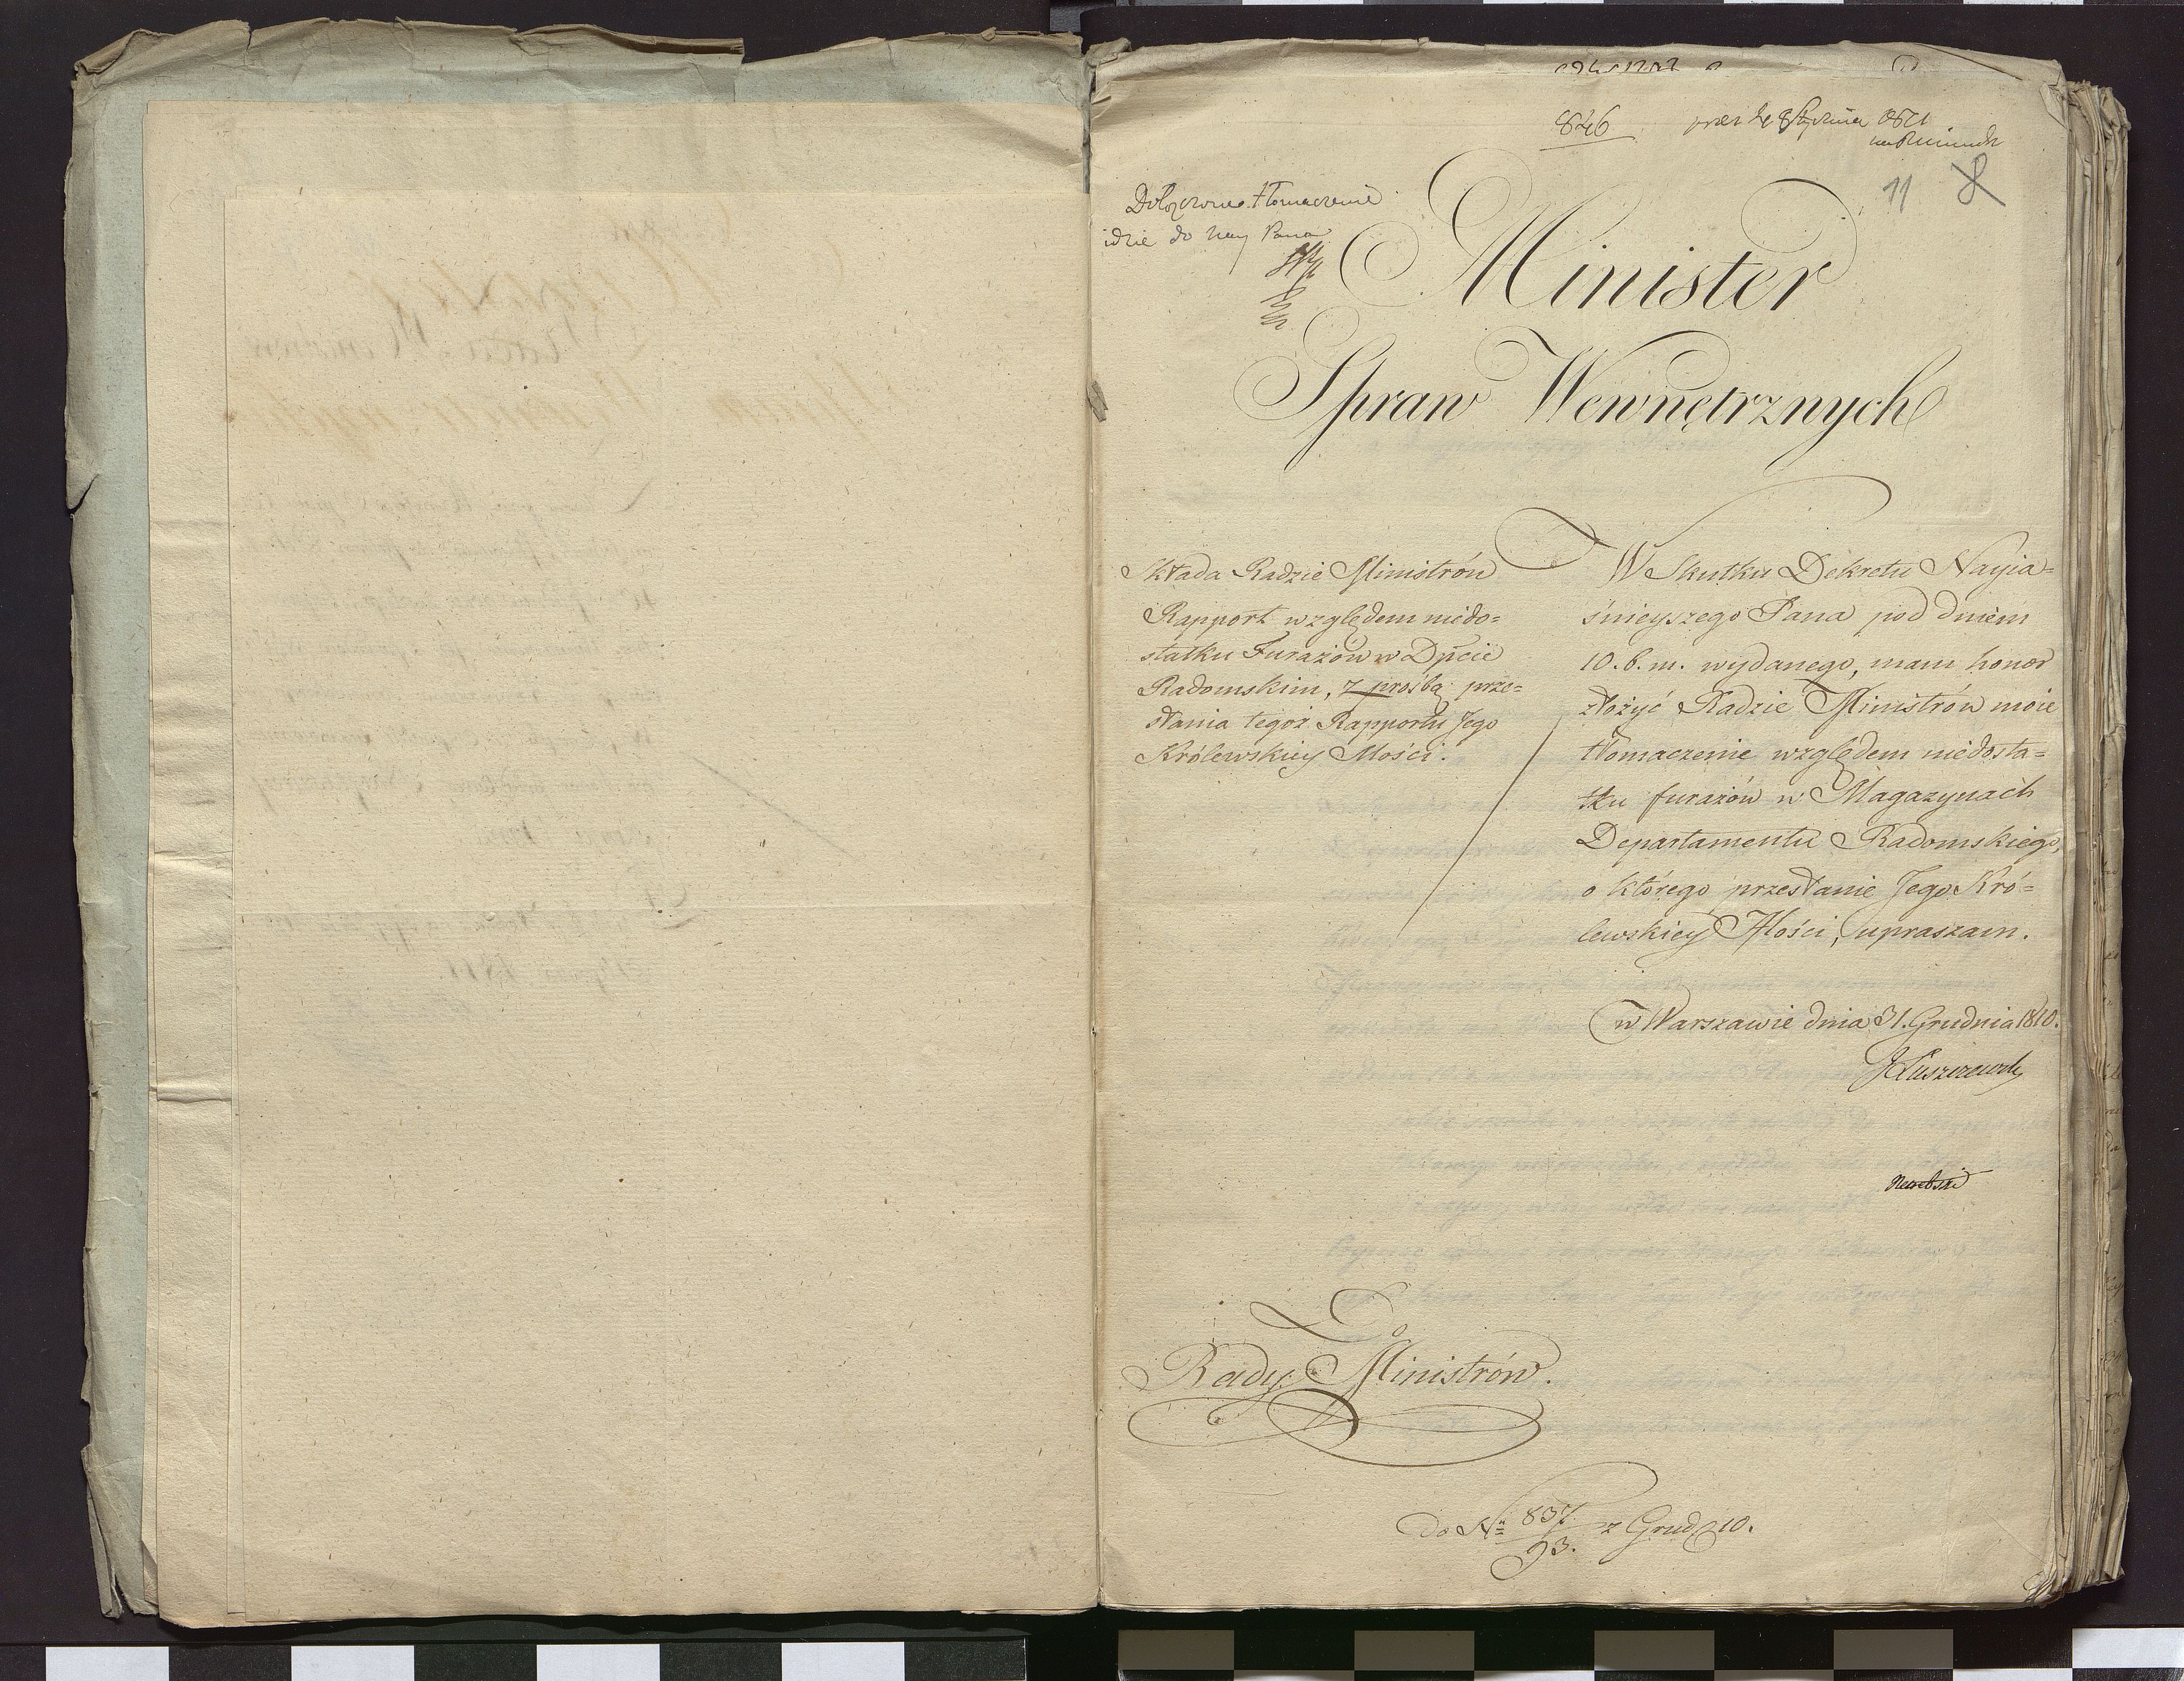 846
11 8
Dołączone tłomaczenie
idzie do Nay Pana
Minister
Spraw Wewnętrznych
Składa Radzie Ministrów
Rapport względem niedo=
statku Furażów w Dpcie
Radomskim, z prośbą prze=
słania tegoż Rapportu Jego
Królewskiey Mości.
W Skutku Dekretu Nayia=
śnieyszego Pana pod dniem
10. b. m. wydanego, mam honor
złożyć Radzie Ministrów moie
tłomaczenie względem niedosta=
tku furażów w Magazynach
Departamentu Radomskiego,
o którego przesłanie Jego Kró=
lewskiey Mości, upraszam.
w Warszawie dnia 31. Grudnia 1810.
JŁuszczewski
Do
Rady Ministrów.
do Nr 837/93. z Grud 10.